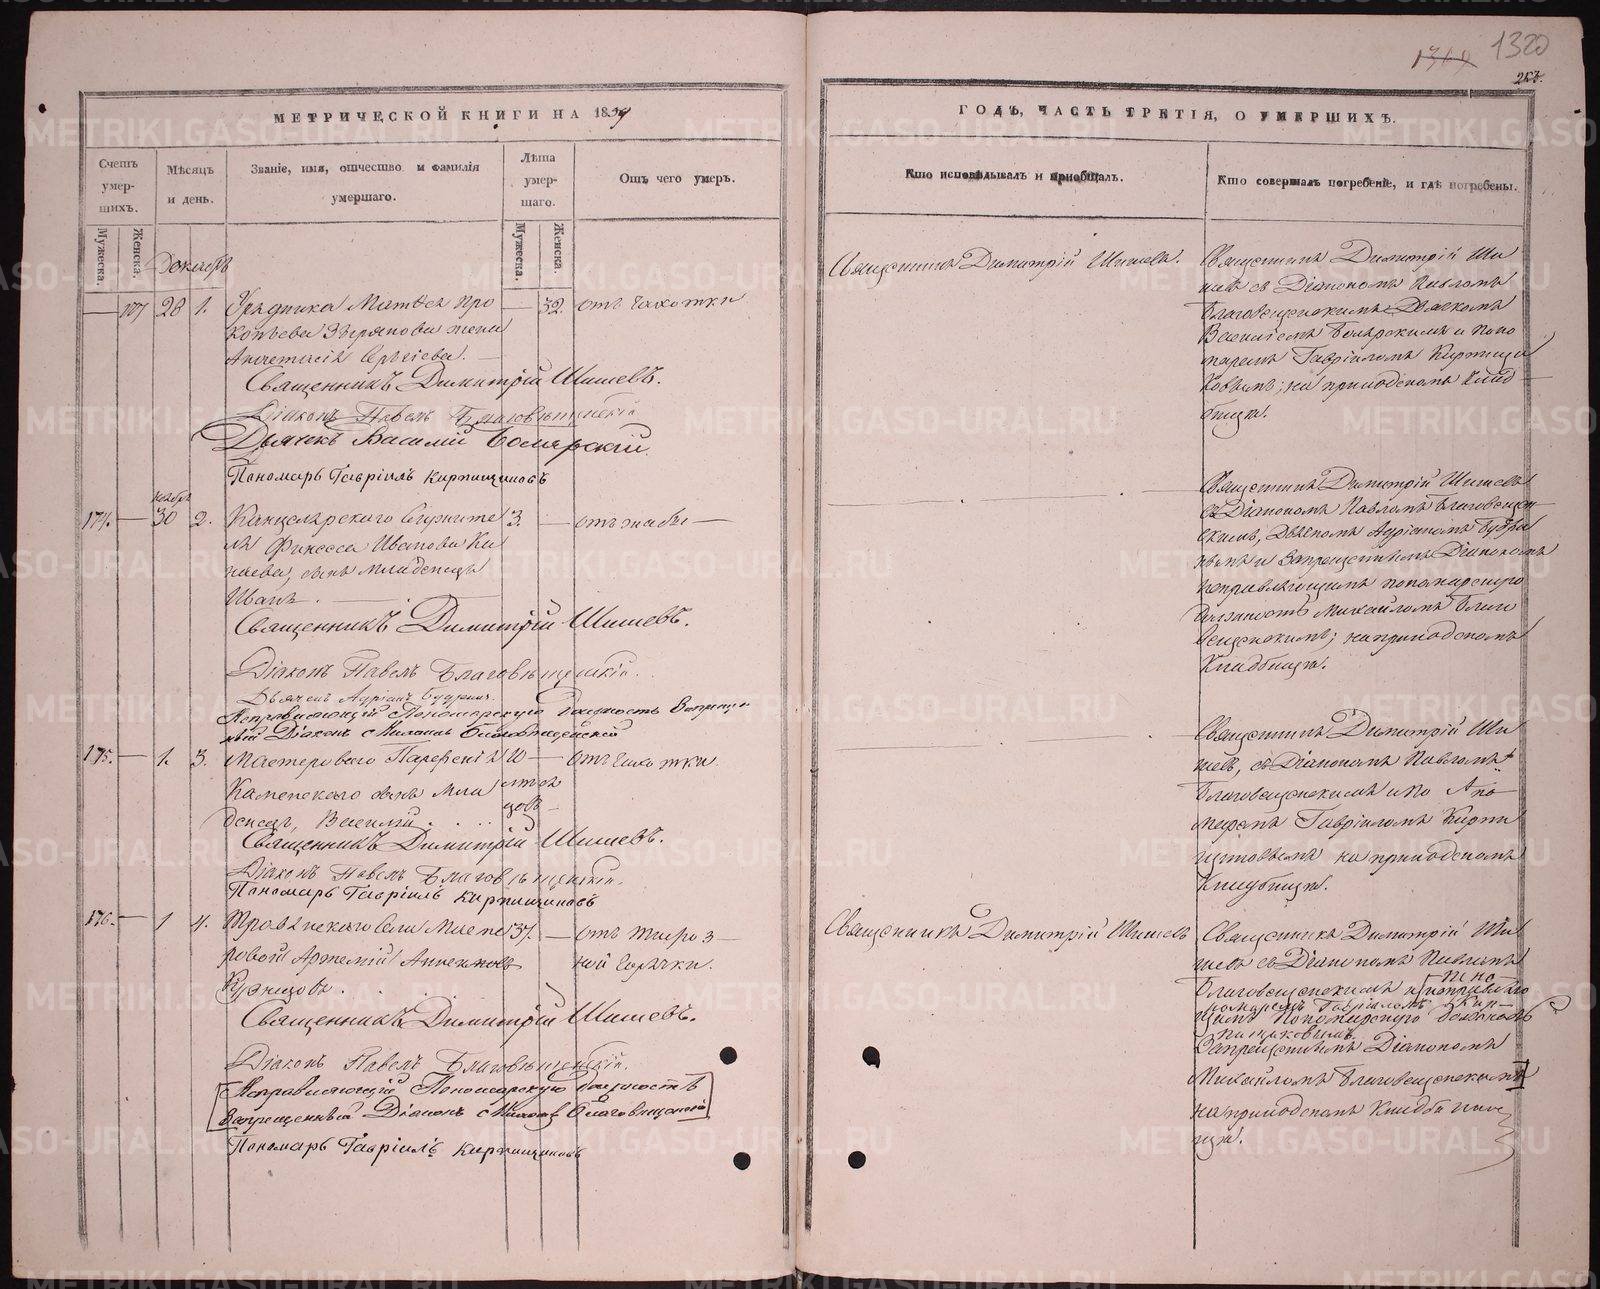 1320
МЕТРИЧЕСКОЙ КНИГИ НА 1839
ГОДЪ, ЧАСТЬ ТРЕТІЯ, О УМЕРШИХЪ.
Счетъ умер-шихъ.
Мужеска.
Женска.
Мѣсяцъ и день.
Званіе, имя, отчество и фамилія умершаго.
Лѣта умер-шаго.
Мужеска.
Женска.
Отъ чего умеръ.
Кто исповѣдывалъ и приобщалъ.
Кто совершалъ погребеніе, и гдѣ погребены.
Декабрь
28 1. Урядника Матвея Про
копьева Зырянова жена
Анастасія Сергіева.
32. отъ чахотки
Священникъ Димитрій Шишевъ.
Діаконъ Павелъ Благовѣщенскій
Дьячекъ Василій Боярскій
Пономарь Гавріилъ Кирпищиковъ
Священникъ Димитрій Шишевъ.
Священникъ Димитрій Ши
шевъ съ Діакономъ Павломъ
Благовещенскимъ Дьячкомъ
Василіемъ Боярскимъ и поно
маремъ Гавріиломъ Кирпищи
ковымъ; на приходскомъ клад
бищѣ.
174. ноябрь 30 2. Канцелярскаго Служите
ля Ивановa
сынъ младенецъ
Иванъ.
3. отъ жабы
Священникъ Димитрій Шишевъ.
Діаконъ Павелъ Благовѣщенскій.
Дьячекъ Адріанъ
Исправляющій Пономарскую должность Запрещен
ный Діаконъ Михаилъ Благовѣщенскій
Священникъ Димитрій Шишевъ
съ Діакономъ Павломъ Благовещен
скимъ, Дьячкомъ Адріаномъ
и Запрещеннымъ Діакономъ
исправляющимъ пономарскую
должность Михаиломъ Благо
вещенскимъ; на приходскомъ
Кладбищѣ.
175. 1. 3. Мастероваго Парфенія
Каменскаго сынъ мла
денецъ, Василій
10
отъ чахотки.
Священникъ Димитрій Шишевъ.
Діаконъ Павелъ Благовѣщенскій.
Пономарь Гавріилъ Кирпищиковъ
Священникъ Димитрій Ши
шевъ, съ Діакономъ Павломъ
Благовещенскимъ и По по
маремъ Гавріиломъ Кирпи
щиковымъ на приходскомъ
Кладбищѣ.
176. 1 4. села Масте
ровой Артемій
Кузнецовъ
37. отъ
ной Горячки.
Священникъ Димитрій Шишевъ.
Діаконъ Павелъ Благовѣщенскій.
Исправляющій Пономарскую должность
Запрещенный Діаконъ Михаилъ Благовѣщенскій
Пономарь Гавріилъ Кирпищиковъ
Священникъ Димитрій Шишевъ
Священникъ Димитрій Ши
шевъ съ Діакономъ Павломъ
Благовещенскимъ и
номаремъ Гавріиломъ Кир
щимъ пономарскую должность
Запрещеннымъ Діакономъ
Михаиломъ Благовещенскимъ
на приходскомъ Кладби
щѣ.
METRIKI.GASO-URAL.RU